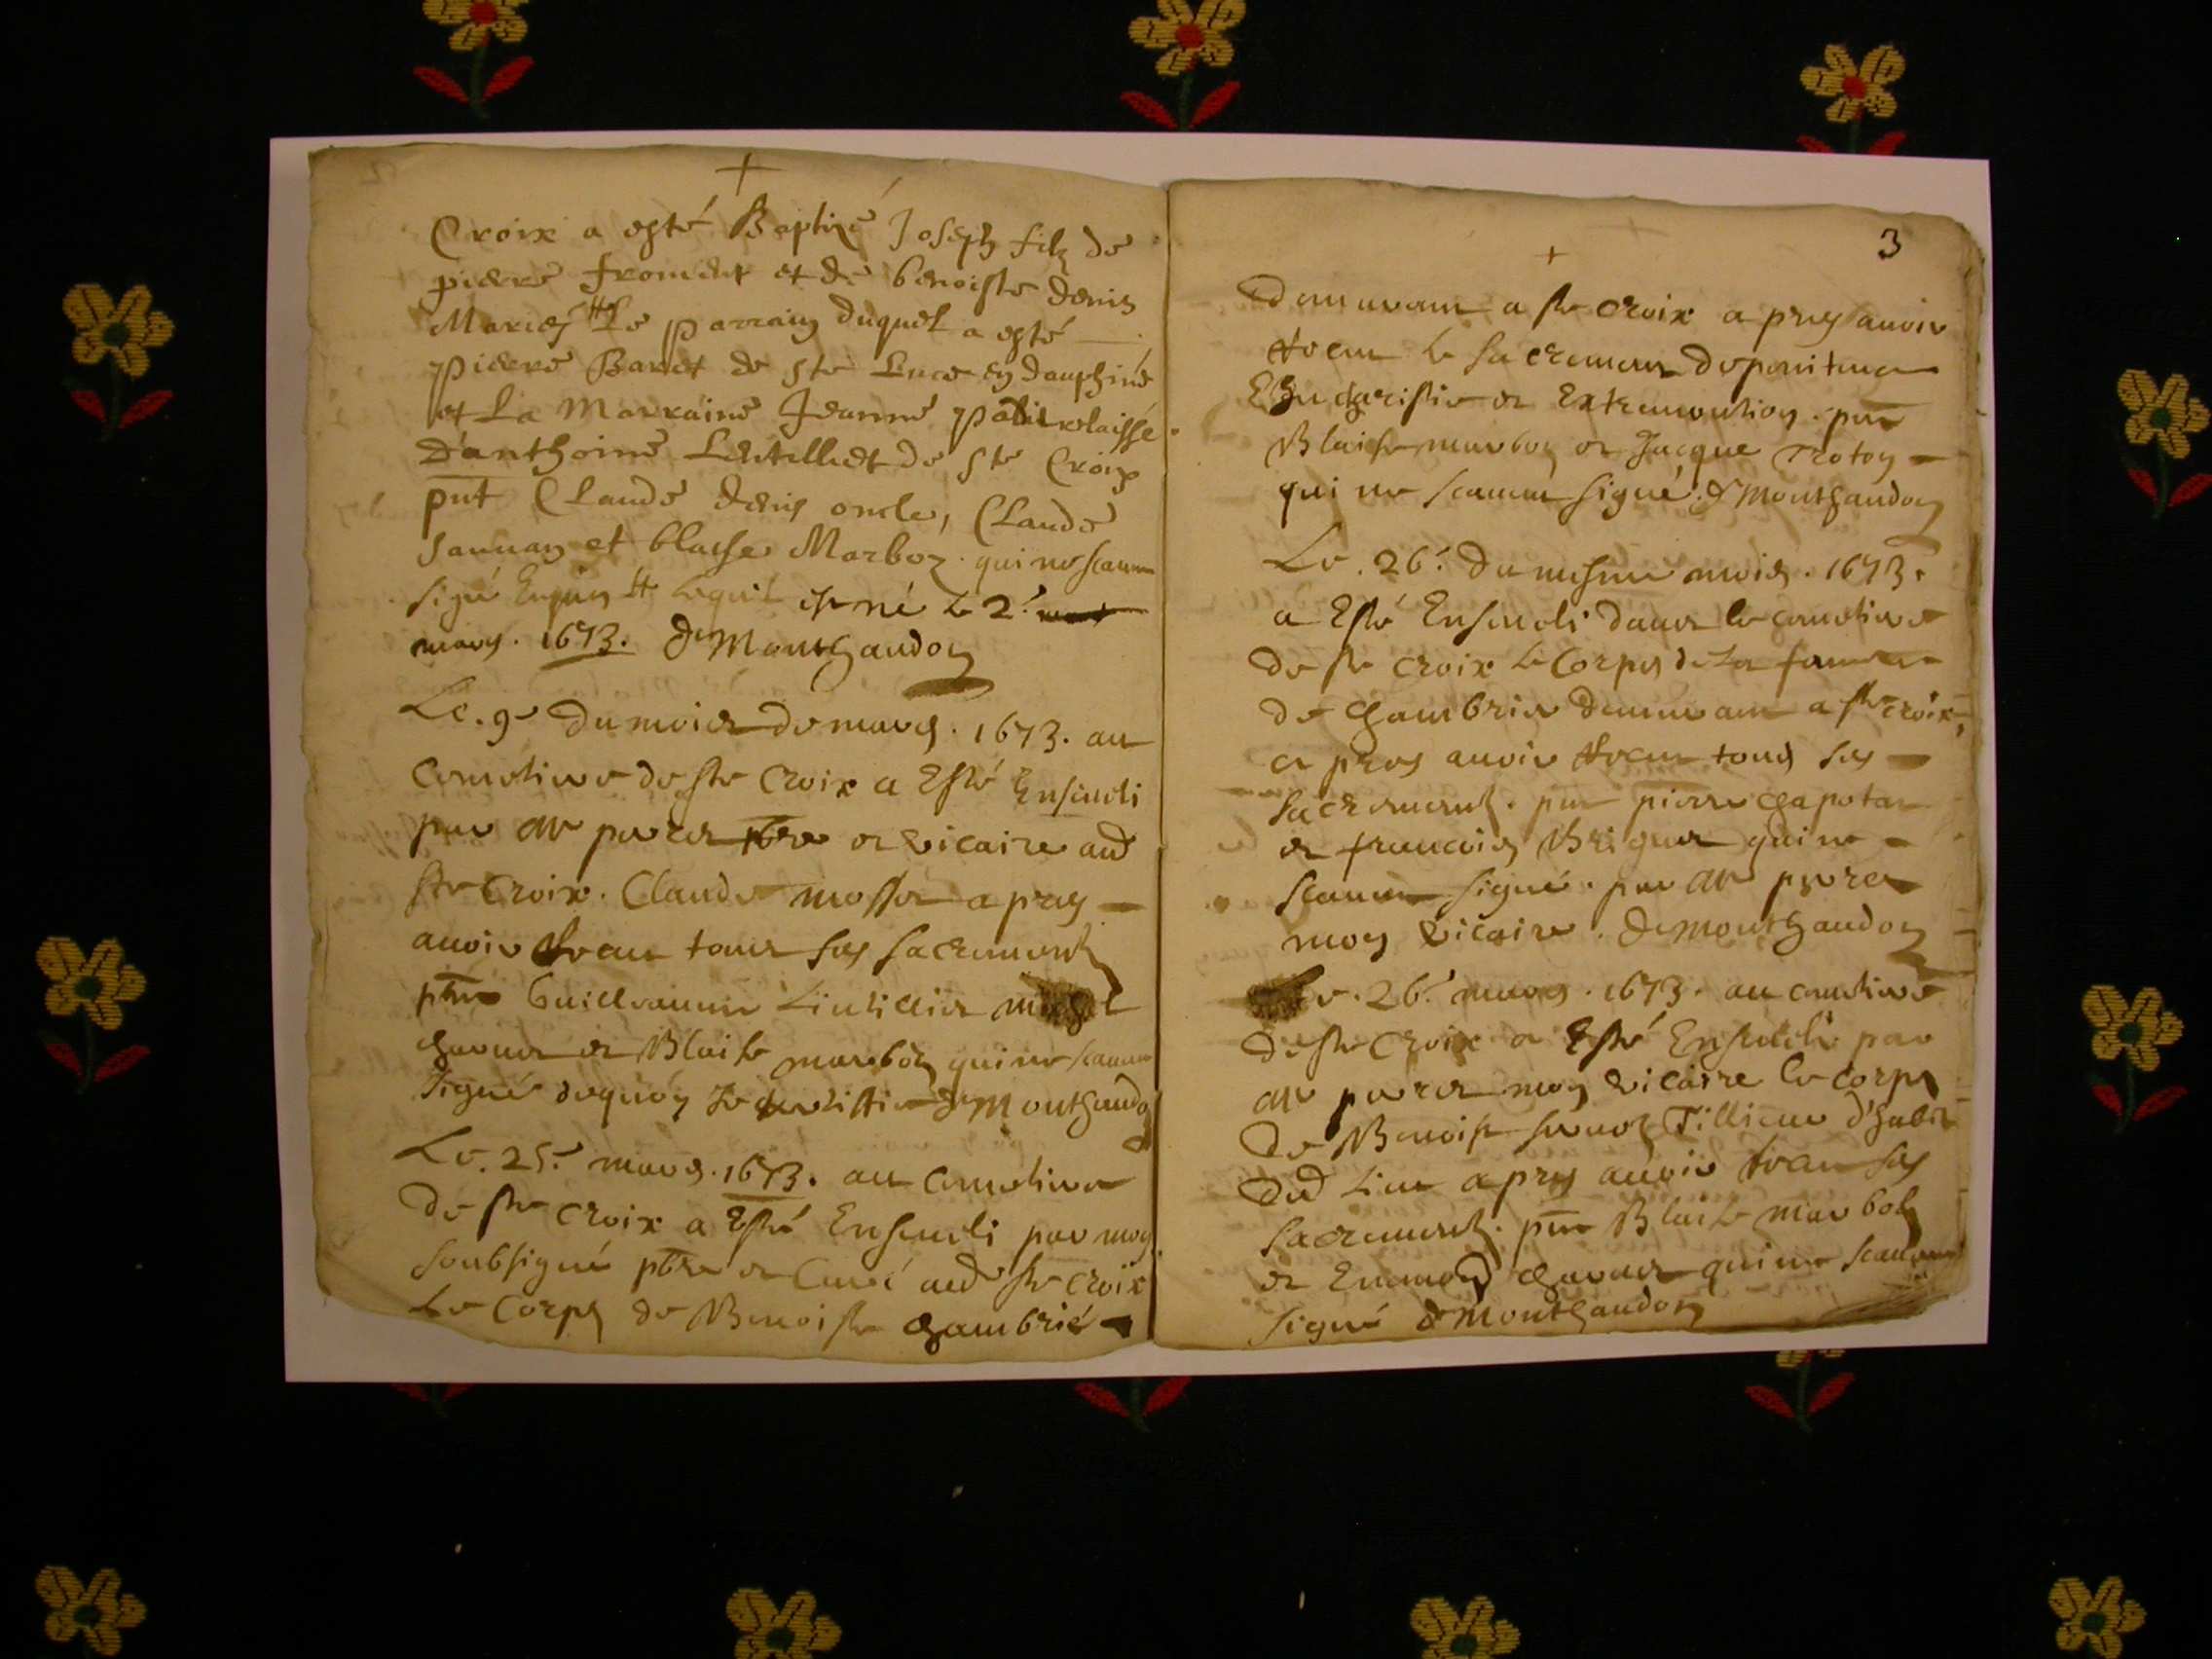 +
Croix a esté Baptizé Joseph filz de
pierre froment et de benoiste denis
Mariés H Le parrain duquel a esté
pierre Baret de Ste Luce en dauphiné
et La Marraine Jeanne relaissé
D'anthoine Lentilliet de Ste Croix
pnt Claude denis oncle, Claude
et blaise Marboz. qui ne scauent
signé Enquis H Lequel est né le 2.e
mars. 1673. DeMontgaudon
Le. 9e du moix de mars. 1673. au
Cemetiere de ste Croix a Esté Enseueli
par Mr perret pbre et vicaire aud
ste Croix. Claude mosset apres
auoir receu tous ses sacrements
pnts Guilleaume Lintillier
chavuet et Blaise marboz qui ne scauent
signé dequoy Je DeMontgaudon
Le. 25.e mars. 1673. au Cemetiere
de ste Croix a Esté Enseueli par moy
soubsigné pbre et Curé aud ste Croix
Le Corps de Benoiste chambrié
3
+
demeurant a ste Croix apres auoir
receu le sacrement de penitence
Euchgaristie et Extremontion. pnt
Blaise marboz et Jacque Noton
qui ne scauent signé. DeMontgaudon
Le. 26.e du mesme mois. 1673.
a Esté Enseueli dans le cemetiere
de ste Croix le Corps de La femme
de chambrier demeurant a ste Croix,
apres auoir receu tous ses
sacrements. pnt pierre chapotat
et francois Briquet qui ne
scauent signé. par Mr perret
mon vicaire. DeMontgaudon
Le. 26.e mars. 1673. au cemetiere
de ste Croix a Esté Enseueli par
Mr perret mon vicaire le Corps
de Benoist Tillieur d'habit
dud Lieu apres auoir receu ses
sacrements. pnt Blaise marboz
et Enemond chavuet qui ne scauent
signé DeMontgaudon